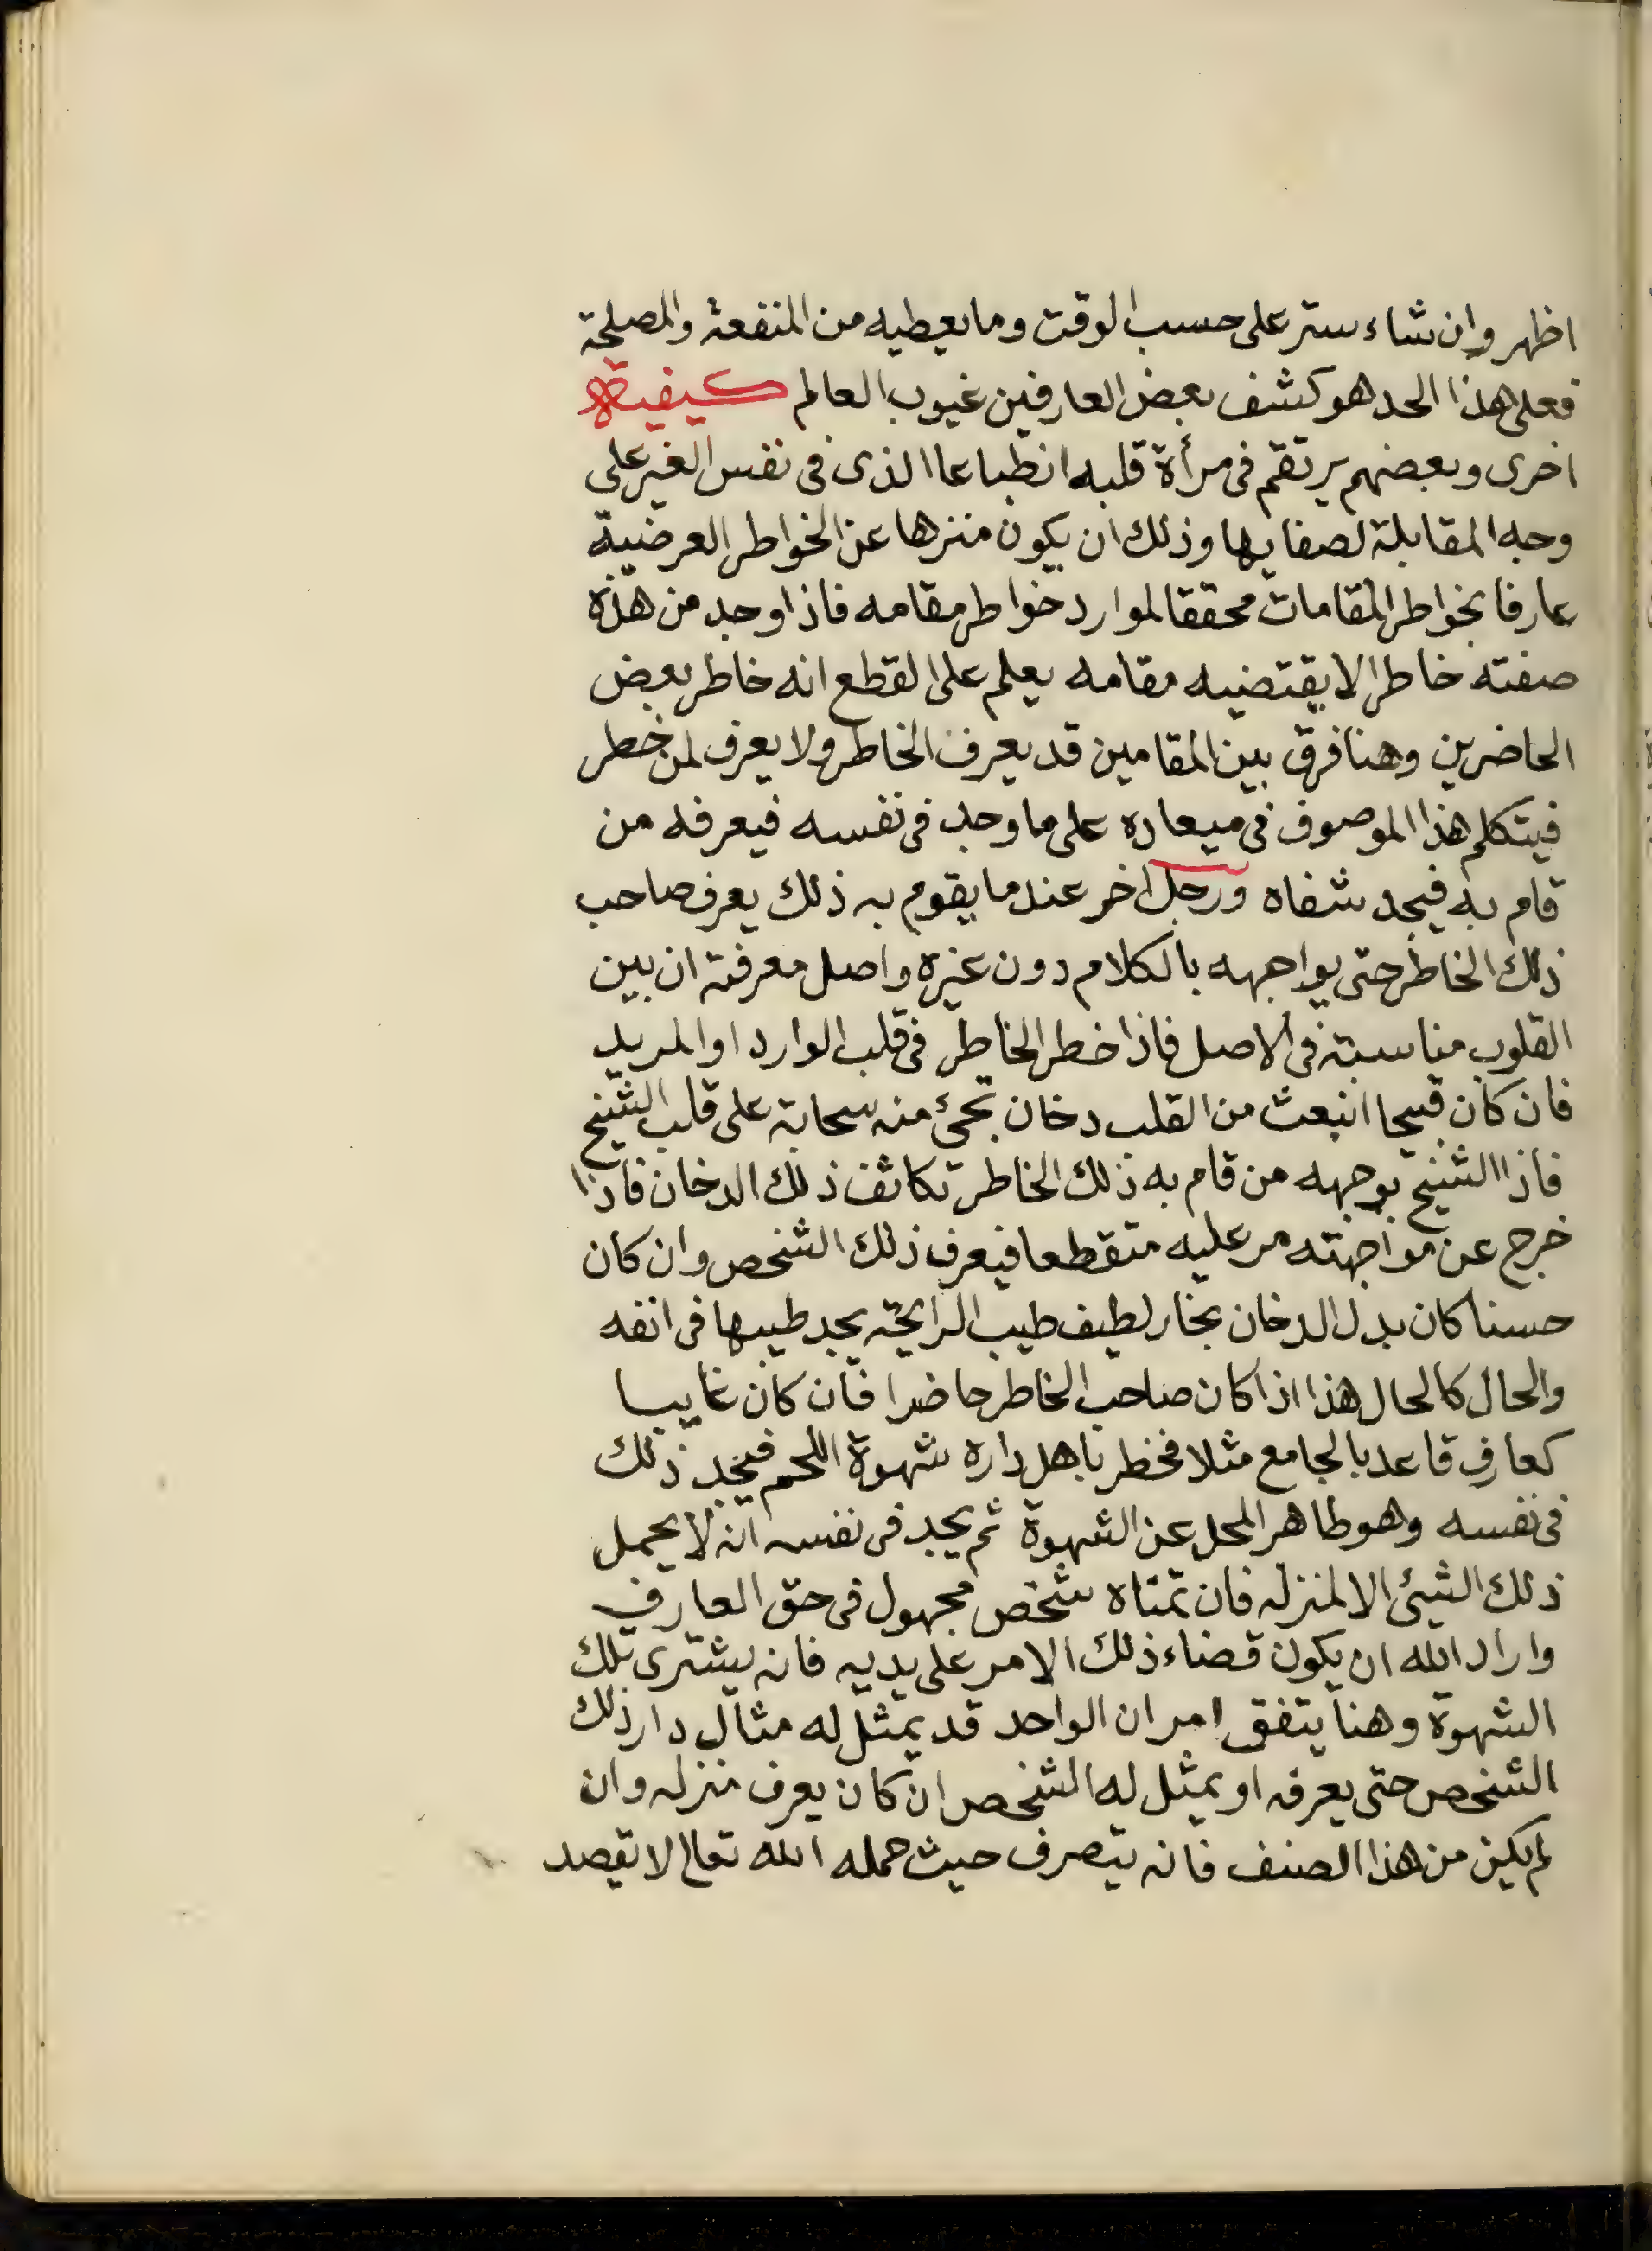 اظهر وان شاء ستر على حسب الوقت وما يعطيه من المنفعة والمصلحة
فعلى هذا الحد هو كشف بعض العارفين غيوب العالم كيفية
اخرى وبعضهم يرتقم فى مرأة قلبه انطباعا الذى فى نفس الغير على
وجه المقابلة لصفايها وذلك ان يكون منزها عن الخواطر العرضية
عارفا بخواطر المقامات محققا لموارد خواطر مقامه فاذا وجد من هذه
صفته خاطرا لا يقتضيه مقامه يعلم على القطع انه خاطر بعض
الحاضرين وهنا فرق بين المقامين قد يعرف الخاطر ولا يعرف لمن خطر
فيتكلم هذا الموصوف فى ميعاده على ما وجد فى نفسه فيعرفه من
قام به فيجد شفاه ورجل اخر عندما يقوم به ذلك يعرف صاحب
ذلك الخاطر حتى يواجهه بالكلام دون غيره واصل معرفته ان بين
القلوب مناسبة فى الاصل فاذا خطر الخاطر فى قلب الوارد او المريد
فان كان قبيحا انبعث من القلب دخان تجئ منه سحابة على قلب الشيخ
فاذا الشيخ بوجهه من قام به ذلك الخاطر تكاثف ذلك الدخان فاذا
خرج عن مواجهته مر عليه متقطعا فيعرف ذلك الشخص وان كان
حسنا كان بدل الدخان بخار لطيف طيب الرايحة يجد طيبها فى انفه
والحال كالحال هذا اذا كان صاحب الخاطر حاضرا فان كان غايبا
كعارف قاعد بالجامع مثلا فخطر باهل داره شهوة اللحم فيجد ذلك
فى نفسه وهو طاهر المحل عن الشهوة ثم يجد فى نفسه انه لا يحمل
ذلك الشيئ الا لمنزله فان تمناه شخص مجهول فى حق العارف
واراد الله ان يكون قضاء ذلك الامر على يديه فانه يشترى تلك
الشهوة وهنا يتفق امران الواحد قد يمثل له مثال دار ذلك
الشخص حتى يعرفه او يمثل له الشخص ان كان يعرف منزله وان
لم يكن من هذا الصنف فانه يتصرف حيث حمله الله تعالى لا تقصد